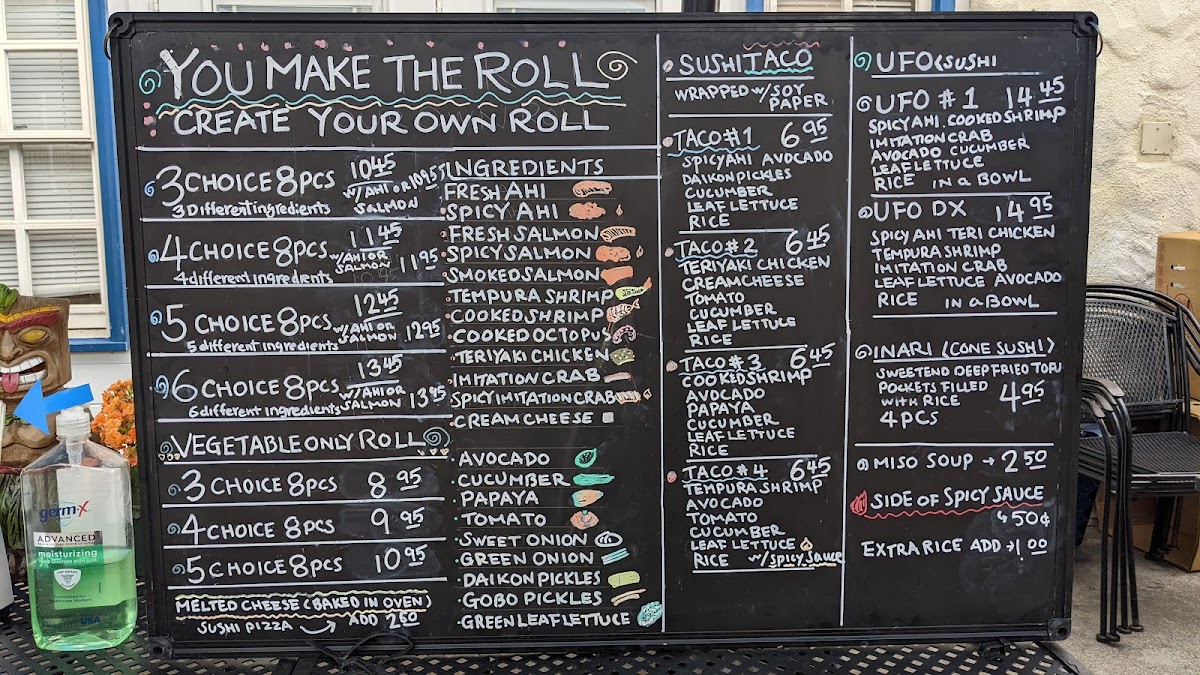 YOU MAKE THE ROLL
CREATE YOUR OWN ROLL
3 CHOICE 8PCS 10 45
3 Different ingredients W/AHI OR SALMON 10 95
4 CHOICE 8PCS 11 45
4 different ingredients W/AHI OR SALMON 11 95
5 CHOICE 8PCS 12 45
5 different ingredients W/AHI OR SALMON 12 95
6 CHOICE 8PCS 13 45
6 different ingredients W/AHI OR SALMON 13 95
VEGETABLE ONLY ROLL
3 CHOICE 8PCS 8 95
4 CHOICE 8PCS 9 95
5 CHOICE 8PCS 10 95
MELTED CHEESE (BAKED IN OVEN)
SUSHI PIZZA → ADD 2 50
INGREDIENTS
FRESH AHI
SPICY AHI
FRESH SALMON
SPICY SALMON
SMOKED SALMON
TEMPURA SHRIMP
COOKED SHRIMP
COOKED OCTOPUS
TERIYAKI CHICKEN
IMITATION CRAB
SPICY IMITATION CRAB
CREAM CHEESE
AVOCADO
CUCUMBER
PAPAYA
TOMATO
SWEET ONION
GREEN ONION
DAIKON PICKLES
GOBO PICKLES
GREEN LEAF LETTUCE
SUSHI TACO
WRAPPED W/ SOY
PAPER
TACO #1 6 95
SPICY AHI AVOCADO
DAIKON PICKLES
CUCUMBER
LEAF LETTUCE
RICE
TACO #2 6 45
TERIYAKI CHICKEN
CREAM CHEESE
TOMATO
CUCUMBER
LEAF LETTUCE
RICE
TACO #3 6 45
COOKED SHRIMP
AVOCADO
PAPAYA
CUCUMBER
LEAF LETTUCE
RICE
TACO #4 6 45
TEMPURA SHRIMP
AVOCADO
TOMATO
CUCUMBER
LEAF LETTUCE
RICE W/ SPICY SAUCE
UFO SUSHI
UFO #1 14 45
SPICY AHI COOKED SHRIMP
IMITATION CRAB
AVOCADO CUCUMBER
LEAF LETTUCE
RICE IN a BOWL
UFO DX 14 95
SPICY AHI TERI CHICKEN
TEMPURA SHRIMP
IMITATION CRAB
LEAF LETTUCE AVOCADO
RICE IN a BOWL
INARI (CONE SUSHI)
SWEETEND DEEP FRIED TOFU
POCKETS FILLED
WITH RICE 4 95
4 PCS
MISO SOUP → 2 50
SIDE OF SPICY SAUCE
↳ 50¢
EXTRA RICE ADD → 1.00
germ-x
ADVANCED
moisturizing
USA